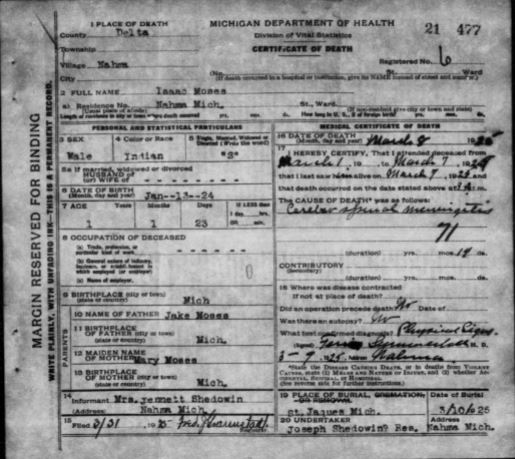 1 PLACE OF DEATH
MICHIGAN DEPARTMENT OF HEALTH
21 477
County Delta
Division of Vital Statistics
Township
CERTIFICATE OF DEATH
Village Nahma
Registered No. 6
City
(No. St. Ward
(If death occurred in a hospital or institution, give its NAME instead of street and number)
2 FULL NAME Isaac Moses
a) Residence No. Nahma Mich. St., Ward.
(Usual place of abode)
(If non-resident give city or town and state)
Length of residence in city or town where death occurred yrs. mos. ds. How long in U. S., if of foreign birth? yrs. mos. ds.
PERSONAL AND STATISTICAL PARTICULARS
3 SEX
4 Color or Race
5 Single, Married, Widowed or Divorced (Write the word)
Male
Indian
"S"
5a If married, widowed or divorced
HUSBAND of
(or) WIFE of
6 DATE OF BIRTH
(Month, day and year)
Jan--13--24
7 AGE Years Months Days If LESS than
1 1 23
8 OCCUPATION OF DECEASED
(a) Trade, profession, or
particular kind of work
(b) General nature of industry,
business, or establishment in
which employed (or employer)
(c) Name of employer
0
9 BIRTHPLACE (city or town)
(state or country) Mich
PARENTS
10 NAME OF FATHER Jake Moses
11 BIRTHPLACE OF
FATHER (city or town)
(state or country) Mich.
12 MAIDEN NAME
OF MOTHER Mary Moses
13 BIRTHPLACE OF
MOTHER (city or town)
(state or country) Mich.
14
Informant Mrs. Shedowin
(Address) Nahma Mich.
15
Filed 3/31 1925
MEDICAL CERTIFICATE OF DEATH
16 DATE OF DEATH
(Month, day and year) March 8 1925
17
I HEREBY CERTIFY, That I attended deceased from
March 1, 19 to March 7 1925
that I last saw him alive on March 7 1925 and
that death occurred on the date stated above at m.
The CAUSE OF DEATH* was as follows:
spinal meningitis
71
(duration) yrs. mos. 14 ds.
CONTRIBUTORY
(Secondary)
(duration) yrs. mos. ds.
18 Where was disease contracted
if not at place of death?
Did an operation precede death? No Date of
Was there an autopsy? No
What test confirmed diagnosis? Physical Signs
(Signed) M. D.
3-9, 1925 Nahma
*State the Disease Causing Death, or in deaths from Violent
Causes, state (1) Means and Nature of Injury, and (2) whether Accidental,
Suicidal, or Homicidal.
(See reverse side for further instructions)
19 PLACE OF BURIAL, CREMATION,
OR REMOVAL
Date of Burial
St. Jaques Mich.
3/10/1925
20 UNDERTAKER
Joseph Shedowin? Res.
(Address)
Nahma Mich.
MARGIN RESERVED FOR BINDING
WRITE PLAINLY, WITH UNFADING INK—THIS IS A PERMANENT RECORD.